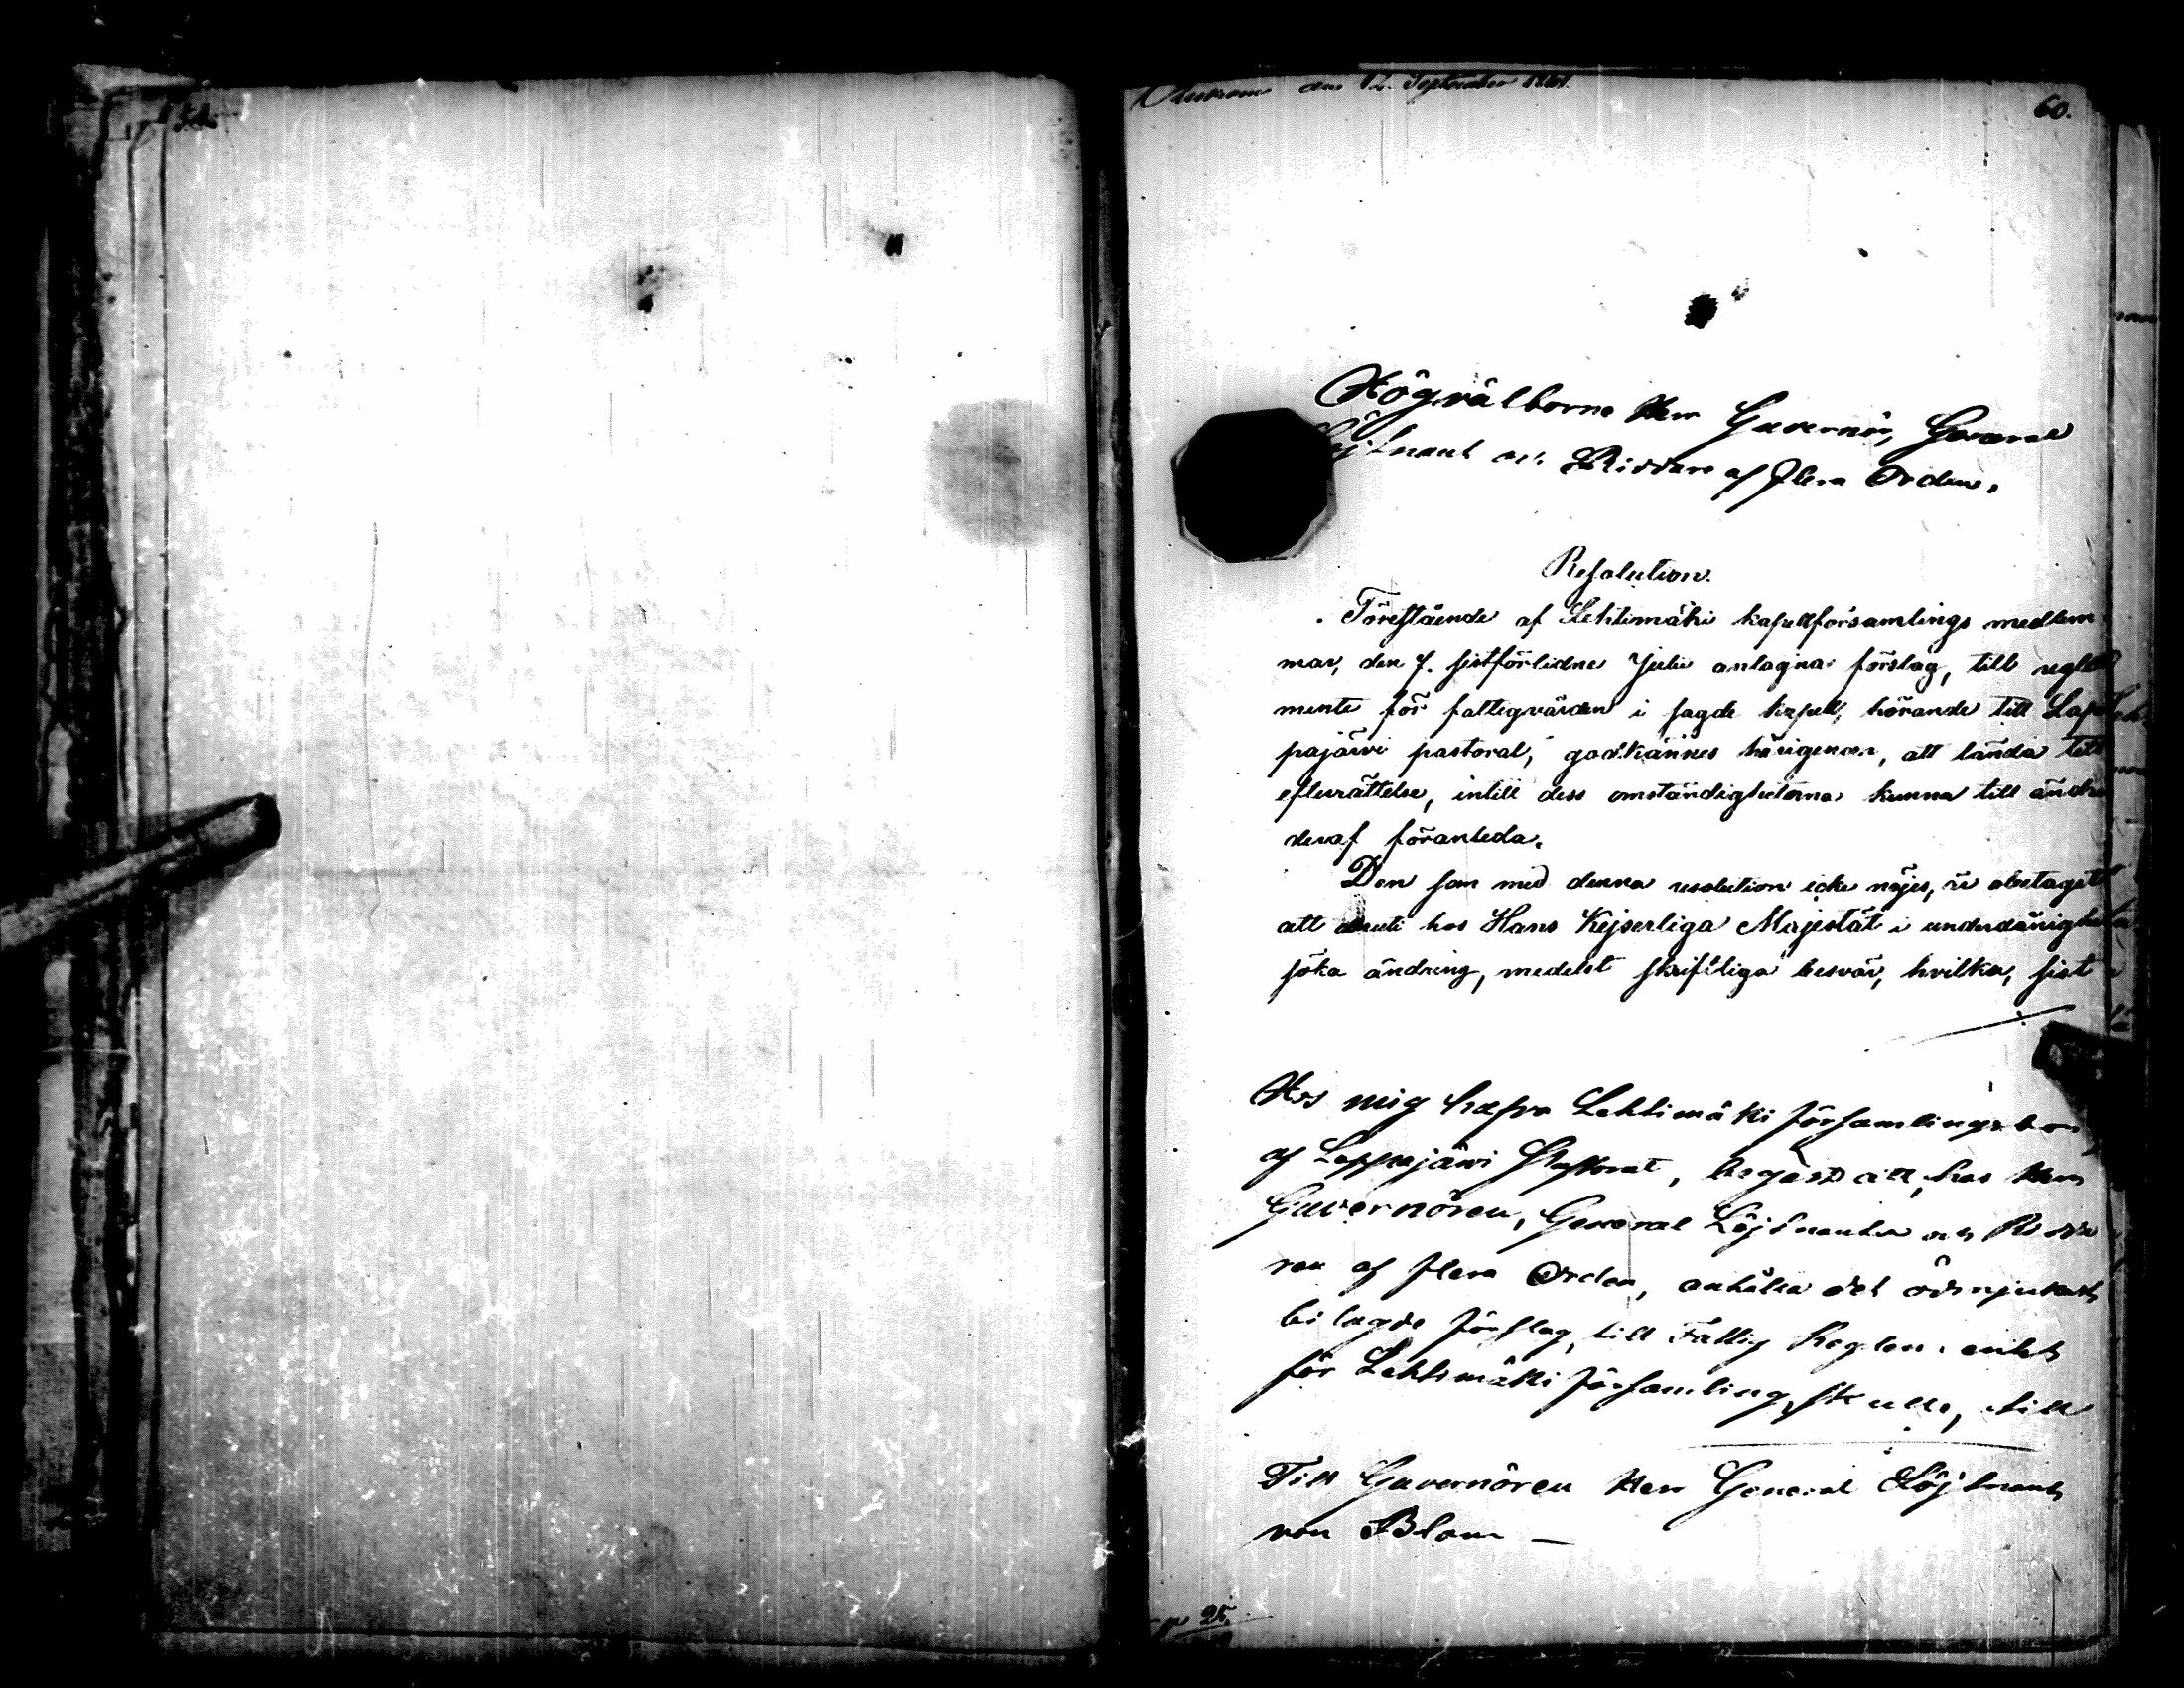 den 12. September 1861.
60.
Högvälborne Herr Guvernör, General
Löjtnant och Riddare af flera Orden.
Resolution.
Förestående af Lehtimäki kapellförsamlings medlem
mar, den 7. sistförlidne Julii antagna förslag, till regle
mente för fattigvården i sagde kapell, hörande till Lap
pajärvi pastorat, godkännes härigenom, att lända till
efterrättelse, intill dess omständigheterna kunna till ändring
deraf föranleda.
Den som med denna resolution icke nöjes, är obetaget
att hos Hans Kejserliga Majestät i underdånighet
söka ändring, medelst skriftliga besvär, hvilka, sist
Hos mig hafva Lehtimäki församlingsbor
af Lappajärvi Pastorat, begärd att, hos Herr
Guvernören, General Löjtnanten och Ridda
ren af flera Orden, anhålla det ödmjukast
bilagde förslag, till Fattig Reglementet
för Lehtimäki församling, skulle, till
Till Guvernören Herr General Löjtnant
von Blom —
25.